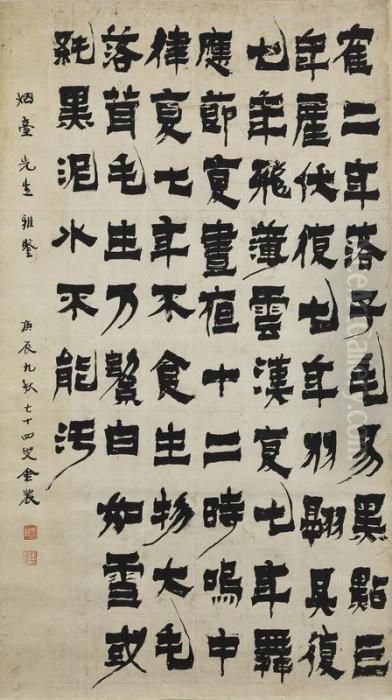 隺二年落子毛易黑點三
年產伏復七年羽翮具復
七年飛薄雲漢复七年舞
應節复晝夜十二時鳴中
律复七年不食生物大毛
落茸毛生乃白如雪或
純黑泥水不能污
烟臺先生雅鑒 庚辰九秋七十四叟金農